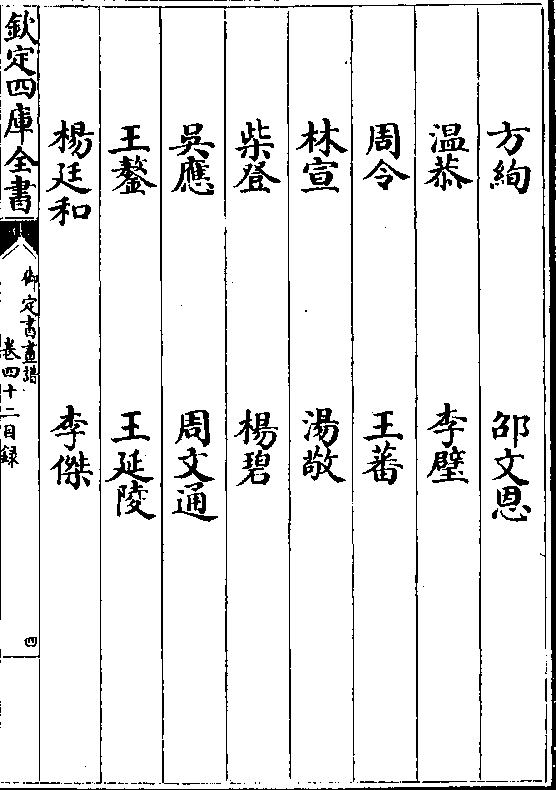 方絢　邵文恩
温恭　李璧
周令　王蕃
林宣　湯敬
柴登　楊碧
吳應　周文通
王鏊　王延陵
楊廷和　李傑
欽定四庫全書
御定書畫譜
卷四十二目録
四